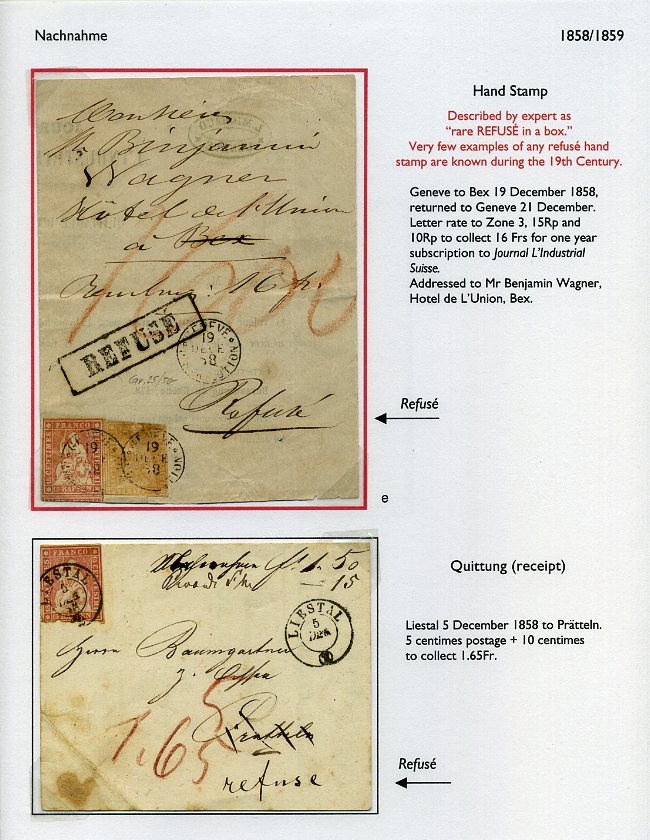 Nachnahme
1858/1859
Hand Stamp
Described by expert as
"rare REFUSÉ in a box."
Very few examples of any refusé hand
stamp are known during the 19th Century.
Geneve to Bex 19 December 1858,
returned to Geneve 21 December.
Letter rate to Zone 3, 15Rp and
10Rp to collect 16 Frs for one year
subscription to Journal L'Industrial
Suisse.
Addressed to Mr Benjamin Wagner,
Hotel de L'Union, Bex.
Monsieur
Binjamin
Wagner
Hôtel de l'Union
à Bex
16 fr.
REFUSÉ
GENEVE
19
DECE
58
Refusé
FRANCO
19
58
GENEVE
19
DECE
58
Refusé
e
Quittung (receipt)
Liestal 5 December 1858 to Prätteln.
5 centimes postage + 10 centimes
to collect 1.65Fr.
FRANCO
LIESTAL
5
1. 50
15
LIESTAL
5
DEK
Herrn Baumgartner
Pratteln
1.65
refuse
Refusé